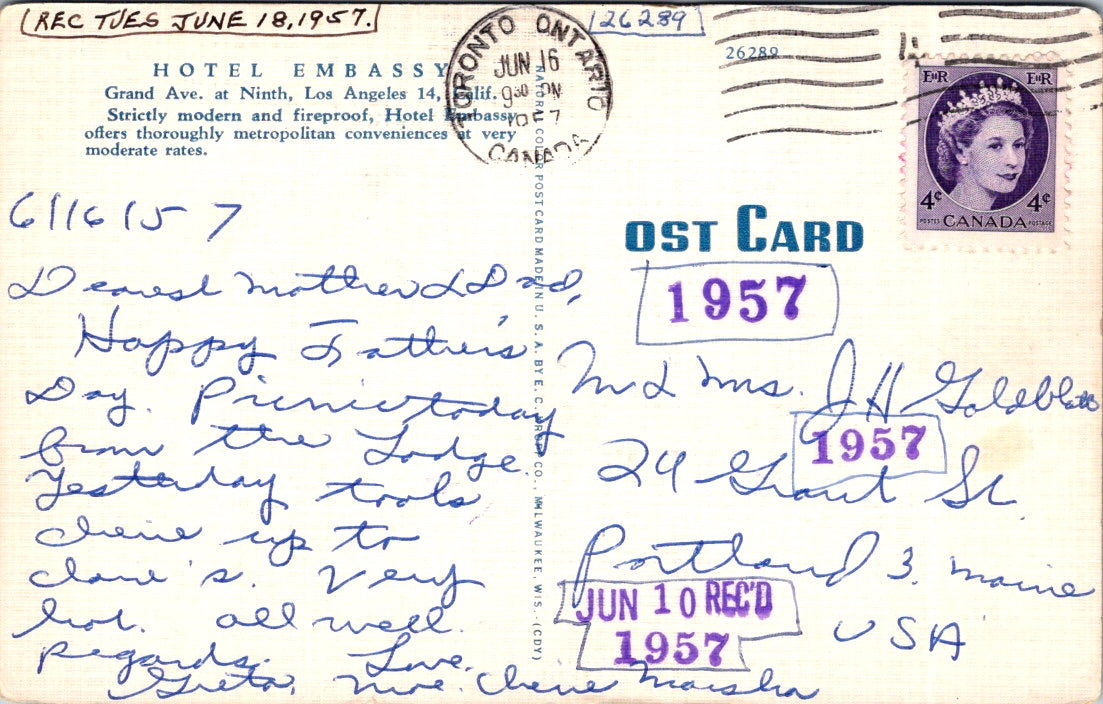 REC TUES JUNE 18, 1957.
126289
26289
HOTEL EMBASSY
Grand Ave. at Ninth, Los Angeles 14, Calif.
Strictly modern and fireproof, Hotel Embassy
offers thoroughly metropolitan conveniences at very
moderate rates.
TORONTO ONTARIO
JUN 16
9 30 PM
1957
CANADA
EIIR EIIR
4¢ 4¢
POSTES CANADA POSTAGE
6/16/57
Dearest Mother & Dad,
Happy Father's
Day. Picnic today
from the Lodge.
Yesterday took
cherie up to
clare's. Very
hot. all well.
Regards. Love.
Greta, Moe. Cherie Marsha
NATURAL COLOR POST CARD MADE IN U. S. A. BY E. C. KROPP CO., MILWAUKEE, WIS. (CDY)
OST CARD
1957
M & Mrs. J H Goldblatt
1957
24 Grant St.
Portland 3. Maine
USA
JUN 10 REC'D
1957